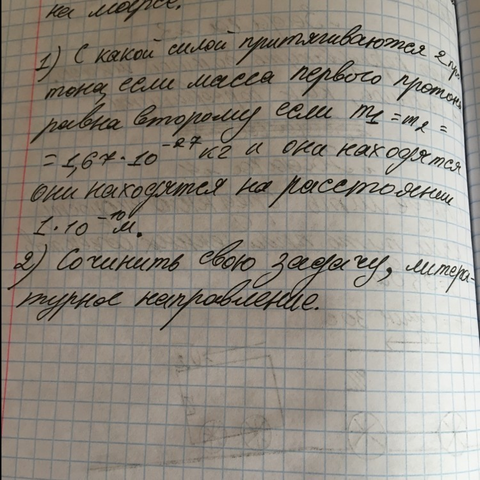 на марсе.
1) С какой силой притягиваются 2 про
тона, если масса первого протона
равна второму если m₁=m₂=
=1,67·10⁻²⁷кг и они находятся
они находятся на расстоянии
1·10⁻¹⁰м.
2) Сочинить свою задачу, литера-
турное направление.